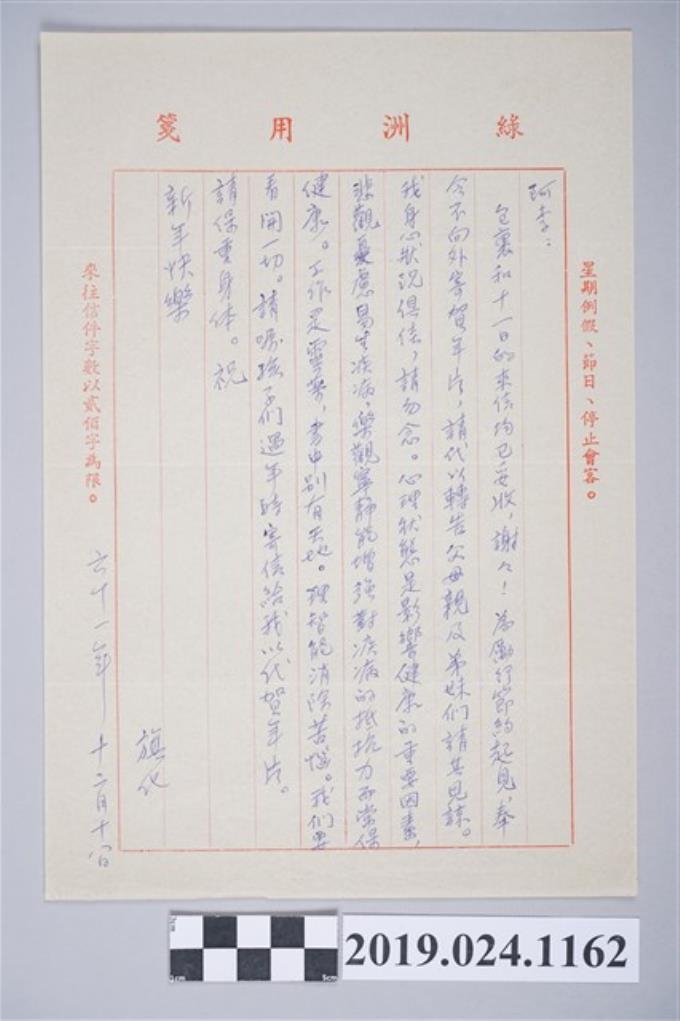 綠洲用箋
星期例假、節日、停止會客。
阿李：
包裹和十一日的來信均已妥收，謝々！為勵行節約起見，奉
令不向外寄賀年片，請代以轉告父母親及弟妹們請其見諒。
我身心狀況俱佳，請勿念。心理狀態是影響健康的重要因素，
悲觀憂慮易生疾病，樂觀寧靜能增強對疾病的抵抗力而常保
健康。工作是靈藥，書中別有天地。理智能消除苦惱。我們要
看開一切。請囑孩子們過年時寄信給我以代賀年片。
請保重身体。祝
新年快樂
旗化
六十一年十二月十八日
來往信件字數以貳佰字為限。
2019.024.1162